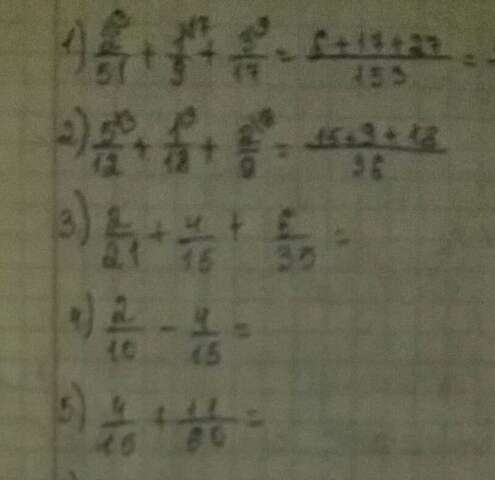 1) 2/51 + 1/9 + 3/17 = 6+17+27/153 = -
2) 5/12 + 1/18 + 2/9 = 15+9+18/36
3) 2/21 + 4/15 + 6/35 =
4) 2/10 - 4/15 =
5) 4/15 + 11/60 =